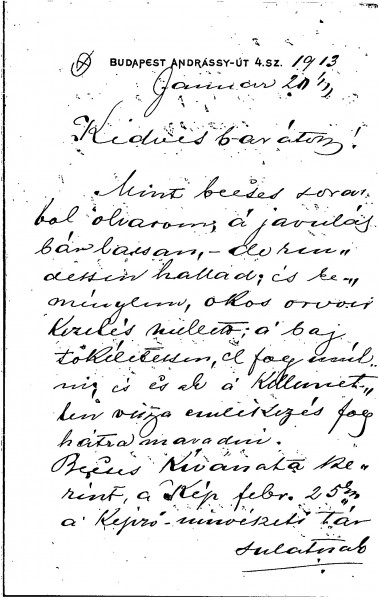 BUDAPEST ANDRÁSSY-ÚT 4.SZ. 1913
Januar 21én
Kedves barátom!
Mint becses sorai
ból olvasom, á javulás
bár lassan, – de ren„
dessen hallad; és re„
ménylem, okos orvosi
kezelés mellett; á baj
tökélétessen, el fog múl
ni, és csak á kellemet
len vissza emlékezés fog
hátra maradni.
Becses Kivánata sze
rint, a Kép febr. 25én
a Képző-müvészeti tár
sulatnak